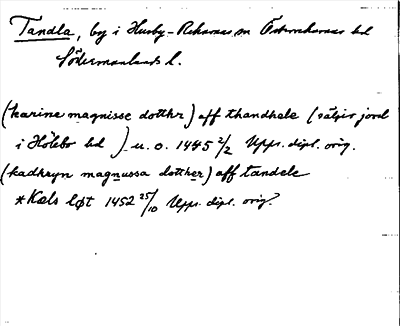 Tandla, by i Husby-Rekarnes sn Österrekarnes hd
Södermanlands l.
(karine magnisse dotthr) aff thandhele (säljer jord
i Hölebo hd) u. o. 1445 2/2 Upps. dipl. orig.
(kadhryn magnussa dotther) aff tandele
*Kæls løt 1452 25/10 Upps. dipl. orig.